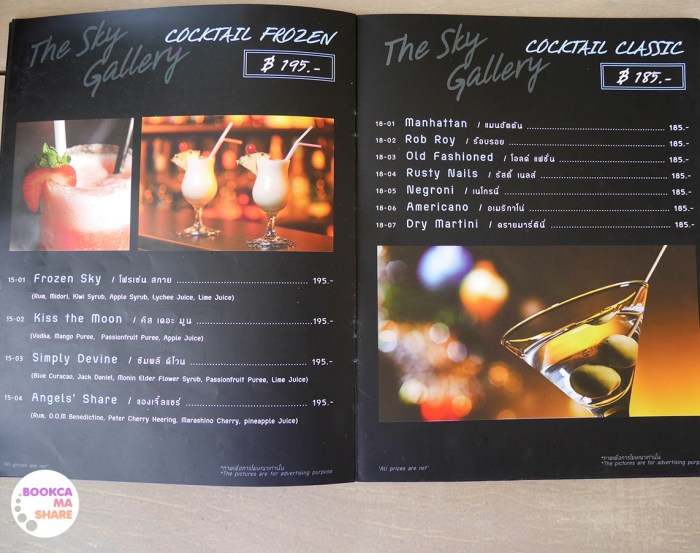 The Sky
Gallery
COCKTAIL FROZEN
฿ 195.-
15-01 Frozen Sky / โฟรเซ่น สกาย 195.-
(Rum, Midori, Kiwi Syrub, Apple Syrub, Lychee Juice, Lime Juice)
15-02 Kiss the Moon / คิส เดอะ มูน 195.-
(Vodka, Mango Puree, Passionfruit Puree, Apple Juice)
15-03 Simply Devine / ซิมพลี ดีไวน 195.-
(Blue Curacao, Jack Daniel, Monin Elder Flower Syrub, Passionfruit Puree, Lime Juice)
15-04 Angels' Share / แองเจิ้ลแชร์ 195.-
(Rum, D.O.M Benedictine, Peter Cherry Heering, Marashino Cherry, pineapple Juice)
"All prices are net"
*ภาพเพื่อการโฆษณาเท่านั้น
*The pictures are for advertising purpose
The Sky
Gallery
COCKTAIL CLASSIC
฿ 185.-
18-01 Manhattan / แมนฮัตตัน 185.-
18-02 Rob Roy / ร็อบรอย 185.-
18-03 Old Fashioned / โอลด์ แฟชั่น 185.-
18-04 Rusty Nails / รัสตี้ เนลส์ 185.-
18-05 Negroni / เนโกรนี่ 185.-
18-06 Americano / อเมริกาโน่ 185.-
18-07 Dry Martini / ดรายมาร์ตินี่ 185.-
"All prices are net"
*ภาพเพื่อการโฆษณาเท่านั้น
*The pictures are for advertising purp
.BOOKCA
MA
SHARE